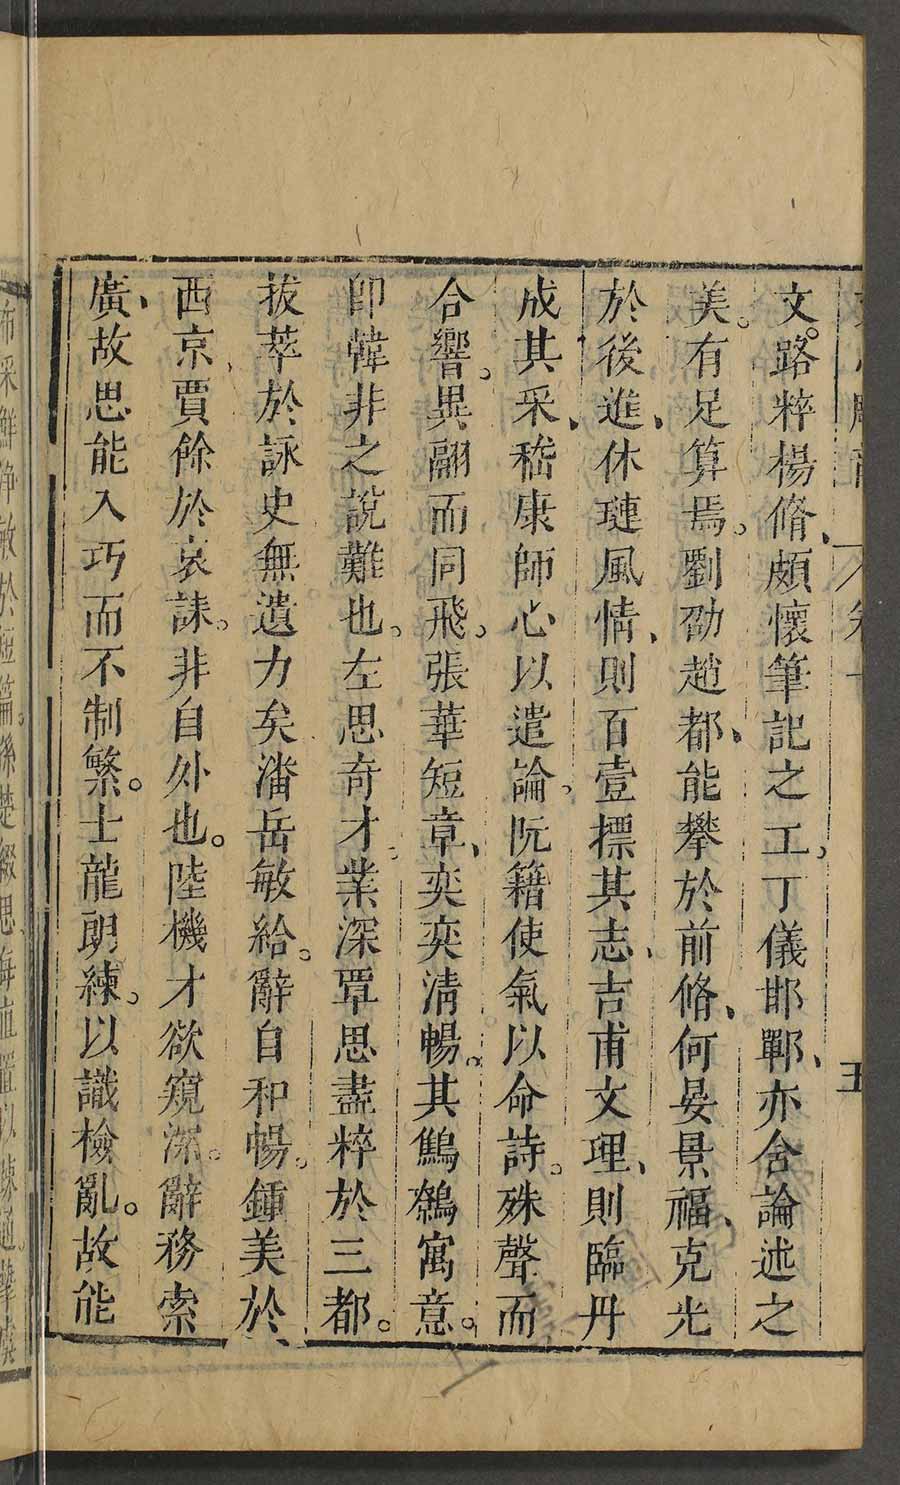 文。路粹楊脩、頗懷筆記之工、丁儀邯鄲、亦含論述之
美。有足算焉。劉劭趙都、能攀於前脩、何晏景福、克光
於後進、休璉風情、則百壹標其志、吉甫文理、則臨丹
成其采、嵇康師心以遣論、阮籍使氣以命詩。殊聲而
合響。異翮而同飛。張華短章、奕奕清暢。其鷦鷯寓意。
卽韓非之說難也。左思奇才。業深覃思盡粹於三都。
拔萃於詠史無遺力矣潘岳敏給。辭自和暢。鍾美於、
西京、賈餘於哀誄。非自外也。陸機才欲窺深。辭務索
廣、故思能入巧而不制繁。士龍朗練。以識檢亂。故能
布采鮮淨敏於短篇。孫楚綴思、每直置以疎通。